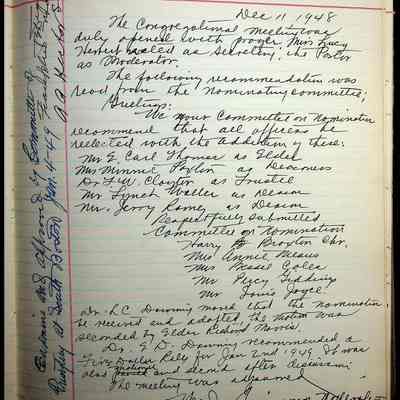 Dec 11, 1948
The Congregational Meeting was
duly opened with prayer, Miss Lucy
Herbert acted as Secretary; the Pastor
as Moderator.
The following recommendation was
read from the Nominating Committee;
Greetings:
We your Committee on Nomination
recommend that all officers be
reelected with the addition of these:
Mr E. Carl Thomas as Elder
Mrs Minnie as Deaconess
Dr. F.W. Clayton as Trustee
Mr Lynah Waller as Deacon
Mr. Jerry Ramey as Deacon
Respectfully Submitted
Committee on Nomination
Harry B Broxton Chr.
Mrs Annie Means
Mrs
Mr Percy
Mr Louis
Dr. L.C. Downing moved that the nomination
be received and adopted the motion was
seconded by Elder Richard Morris.
Dr. E. D. Downing recommended a
Five Dollar Rally for Jan 2nd 1949. It was
also motioned and second after discussion
The meeting was adjourned
Examined and Approved by Committee of
Presbytery at South Boston Jan. 4-49